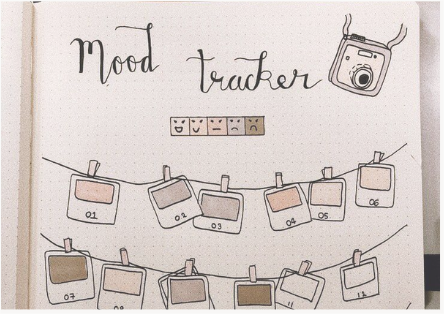 Mood tracker
01 02 03 04 05 06
07 08 11 12